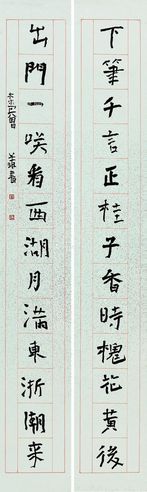 下筆千言正桂子香時槐花黃後
出門一咲看西湖月滿東浙潮來